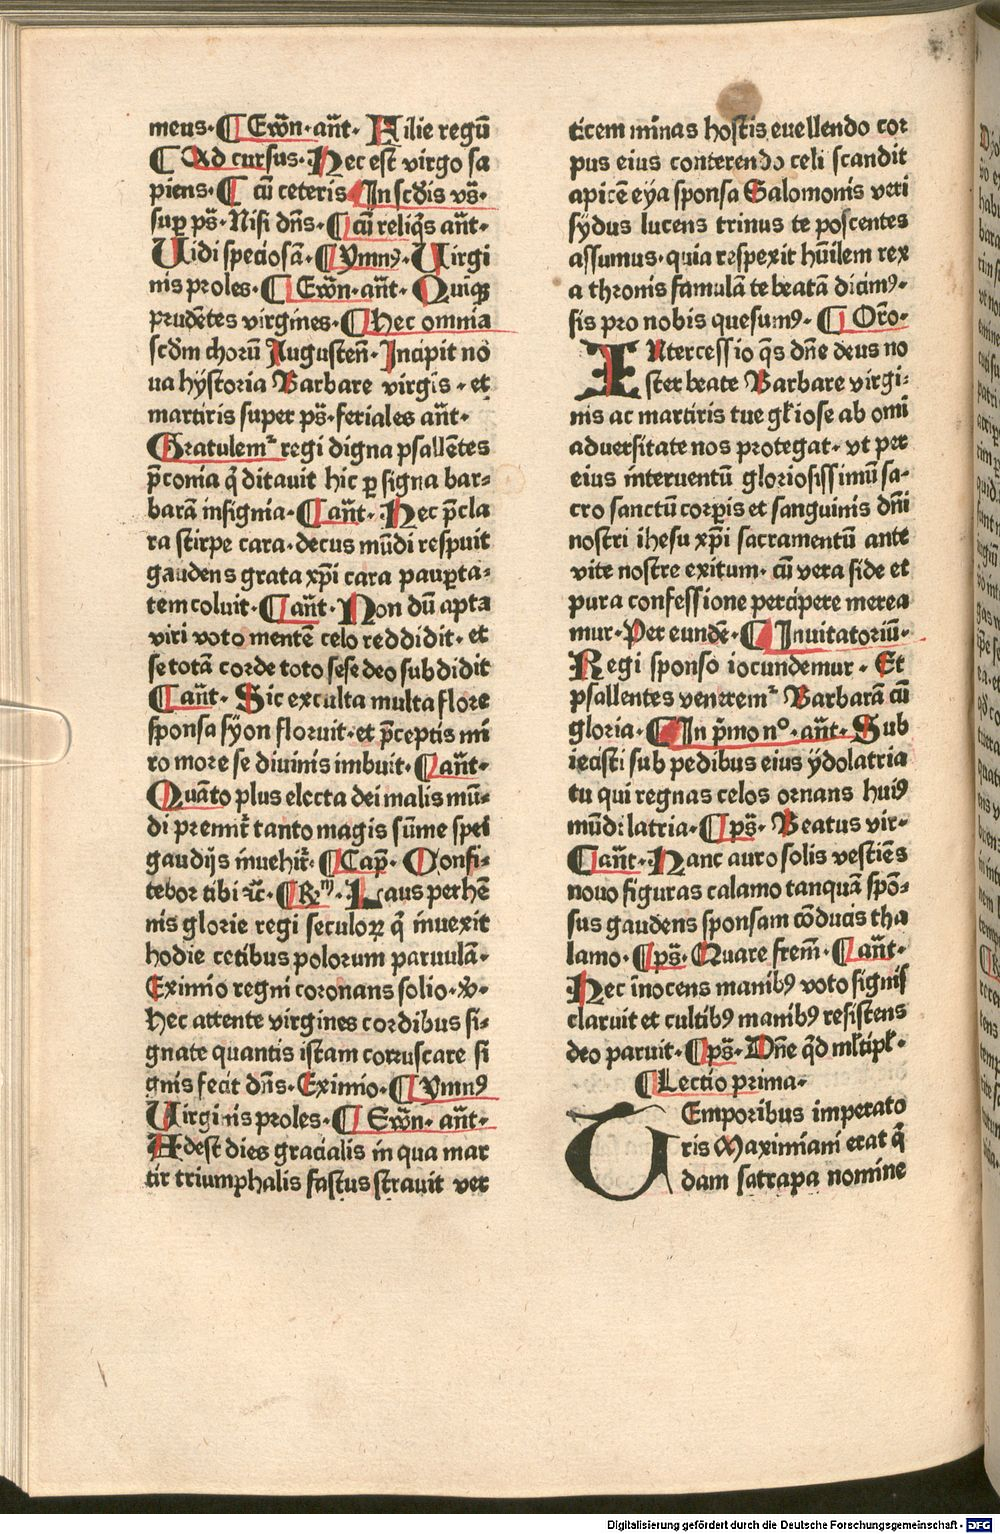 meus· ¶ Ewñ·añt· Filie regū
¶ Ad cursus· Hec est virgo sa
piens· ¶ cū ceteris ¶ In scdis vs̄·
suꝑ ps̄· Nisi dn̄s· ¶ cū reliq̄s añt·
Uidi speciosā· ¶ Ymnꝰ· Uirgi
nis proles· ¶ Ewñ·añt· Quiꝗ
prudētes virgines· ¶ Hec omnia
scdm chorū Augusteñ· Incipit no
ua hÿstoria Barbare virgis · et
martiris super ps̄· feriales añt·
Gratulemᷣ regi digna psallētes
p̄conia q̄ ditauit hic ꝑ signa bar⸗
barā insignia· ¶ añt· Hec p̄cla
ra stirpe cara·decus mūdi respuit
gaudens grata xp̄i cara pauꝑta⸗
tem coluit· ¶ añt· Non dū apta
viri voto mentē celo reddidit· et
se totā corde toto sese deo subdidit
¶ añt· Sic exculta multa flore
sponsa sÿon floruit·et p̄ceptis mi
ro more se diuinis imbuit· ¶ añt·
Quāto plus electa dei malis mū⸗
di premit̄ tanto magis sūme spei
gaudijs inuehit̄· ¶ Cap̄· Confi⸗
tebor tibi ꝛc̄· ¶ Rm̄· Laus perhē
nis glorie regi seculoꝝ q̄ inuexit
hodie cetibus polorum paruulā·
Eximio regni coronans solio·v̄·
hec attente virgines cordibus si⸗
gnate quantis istam corruscare si
gnis fecit dn̄s· Eximio· ¶ Ymnꝰ
Uirginis proles· ¶ Ewñ· añt·
Adest dies gracialis in qua mar
tir triumphalis fastus strauit ver
ticem minas hostis euellendo cor
pus eius conterendo celi scandit
apicē eya sponsa Salomonis veri
sÿdus lucens trinus te poscentes
assumus· quia respexit hūilem rex
a thronis famulā te beatā dicimꝰ·
sis pro nobis quesumꝰ· ¶ Oro·
INtercessio q̄s dn̄e deus no
ster beate Barbare virgi⸗
nis ac martiris tue gl̄iose ab omi
aduersitate nos protegat· vt per
eius interuentū gloriosissimū sa⸗
cro sanctū corꝑis et sanguinis dn̄i
nostri ihesu xp̄i sacramentū ante
vite nostre exitum· cū vera fide et
pura confessione percipere merea
mur· Per eundē· ¶ Inuitatoriū·
Regi sponso iocundemur · Et
psallentes veneremᷣ Barbarā cū
gloria· ¶ In p̄mo nᵒ·añt· Sub
iecisti sub pedibus eius ÿdolatria
tu qui regnas celos ornans huiꝰ
mūdi latria· ¶ ps̄· Beatus vir·
¶ añt· Hanc auro solis vestiēs
nouo figuras calamo tanquā spō⸗
sus gaudens sponsam cōducis tha
lamo· ¶ ps̄· Quare frem̄· ¶ añt·
Hec inocens manibꝰ voto signis
claruit et cultibꝰ manibꝰ resistens
deo paruit· ¶ ps̄· Dn̄e q̄d ml̄tipl̄·
¶ Lectio prima·
TEmporibus imperato
ris Maximiani erat q̄
dam satrapa nomine
Digitalisierung gefördert durch die Deutsche Forschungsgemeinschaft - DFG